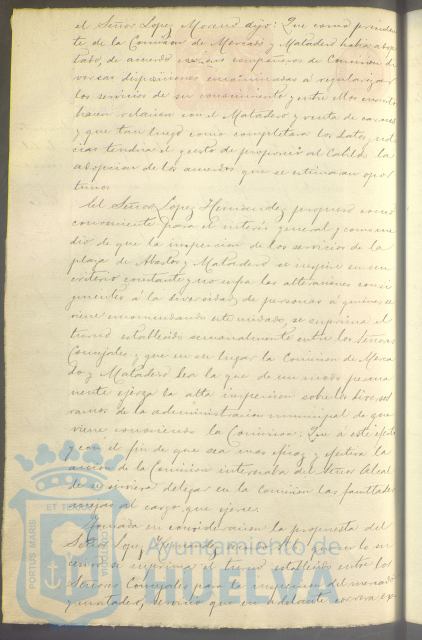 el Señor Lopez Moreno dijo: Que como presiden
te de la Comision de Mercado y Matadero habia adop
tado, de acuerdo compañeros de Comision di
versas disposiciones encaminadas á regularizar
los servicios de su conocimiento y entre ellos
hacen relacion con el Matadero y venta de carnes
y que tan luego como completara los datos
cias tendria el gusto de proponer al Cabildo la
adopcion de los acuerdos que se estimaran opor
tunos.
El Señor Lopez Hernandez propuso como
conveniente para el interés general y como me
dio de que la inspeccion de los servicios de la
plaza de Abastos y Matadero se inspire en un
criterio constante y no sufra las alteraciones consi
guientes á la diversidad de personas á quienes se
viene encomendando este cuidado, se suprima el
turno establecido semanalmente entre los Señores
Concejales y que en su lugar la Comision de Merca
do y Matadero sea la que de un modo perma
nente ejerza la alta inspeccion sobre los diversos
ramos de la administracion municipal de que
viene conociendo la Comision: Que á este efecto
y con el fin de que sea mas eficaz y efectiva la
accion de la Comision interesaba del Señor Alcal
de se sirviera delegar en la Comision las facultades
anejas al cargo que ejerce.
Tomada en consideracion la propuesta del
Señor Lopez Hernandez
se suprima el turno establecido entre los
Señores Concejales para la inspeccion del mercado
y matadero, servicio que en adelante correrá ex-
Ayuntamiento de
HUELVA
PORTUS MARIS
ET TERRAE
CUSTODIA